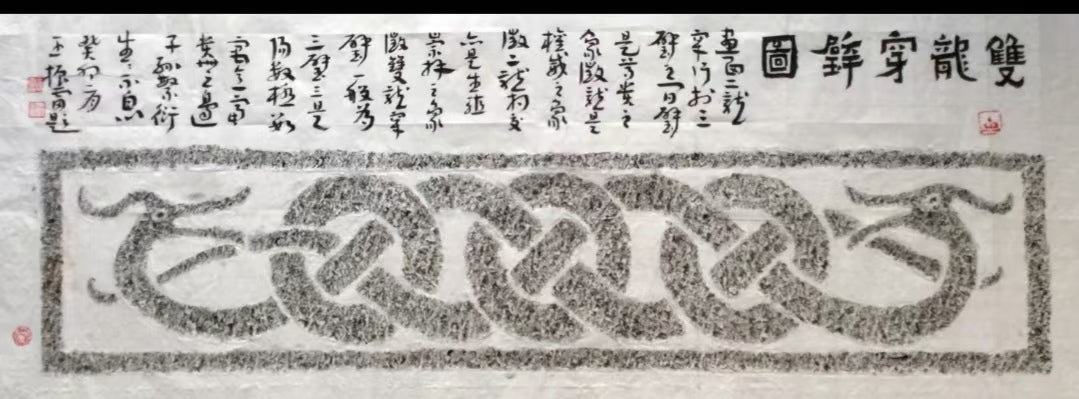 雙龍穿璧圖
畫面二龍
穿行於三
璧之間璧
是尊貴之
象徵龍是
權威之象
徵二龍相交
亦是生殖
崇拜之象
徵雙龍穿
璧一般為
三璧三是
陽數極數
寓意富
貴無邊
子孫繁衍
生生不息
癸卯
王振 題